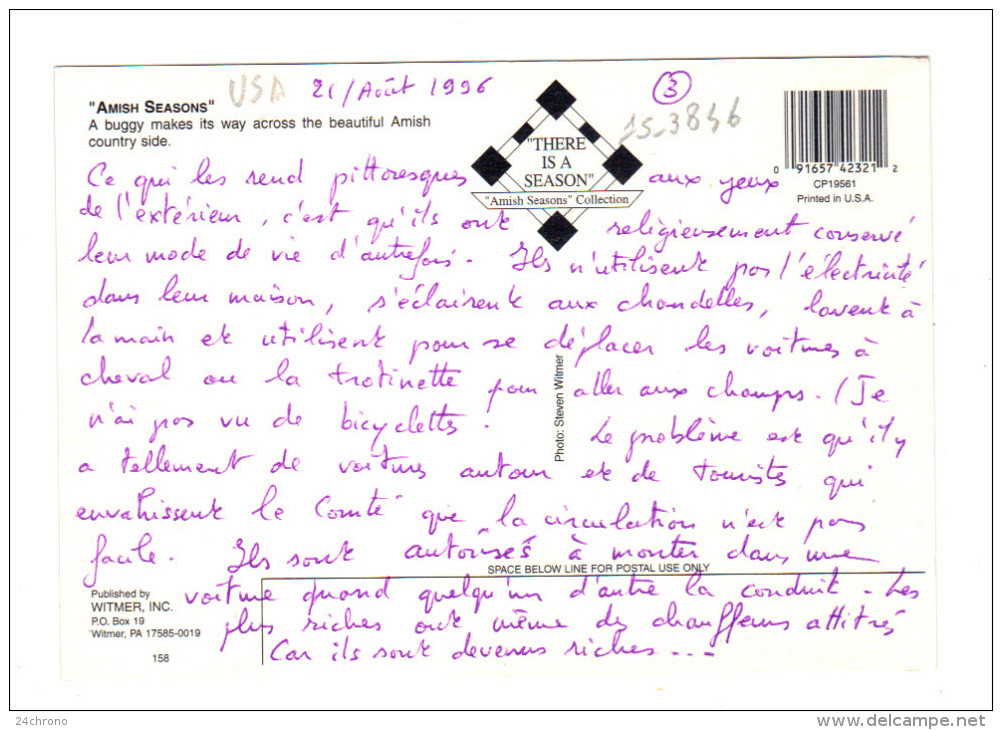 USA 21/Août 1996 ③ 15-3846
"AMISH SEASONS"
A buggy makes its way across the beautiful Amish
country side.
"THERE
IS A
SEASON"
"Amish Seasons" Collection
0 91657 42321 2
CP19561
Printed in U.S.A.
Ce qui les rend pittoresques aux yeux
de l'extérieur, c'est qu'ils ont religieusement conservé
leur mode de vie d'autrefois. Ils n'utilisent pas l'électricité
dans leur maison, s'éclairent aux chandelles, lavent à
la main et utilisent pour se déplacer les voitures à
cheval ou la trotinette pour aller aux champs. (Je
n'ai pas vu de bicyclettes. Le problème est qu'il y
a tellement de voitures autour et de touristes qui
envahissent le Comté que la circulation n'est pas
facile. Ils sont autorisés à monter dans une
voiture quand quelqu'un d'autre la conduit. Les
plus riches ont même des chauffeurs attitrés
Car ils sont devenus riches...
Photo: Steven Witmer
SPACE BELOW LINE FOR POSTAL USE ONLY
Published by
WITMER, INC.
P.O. Box 19
Witmer, PA 17585-0019
158
24chrono
delcampe.net